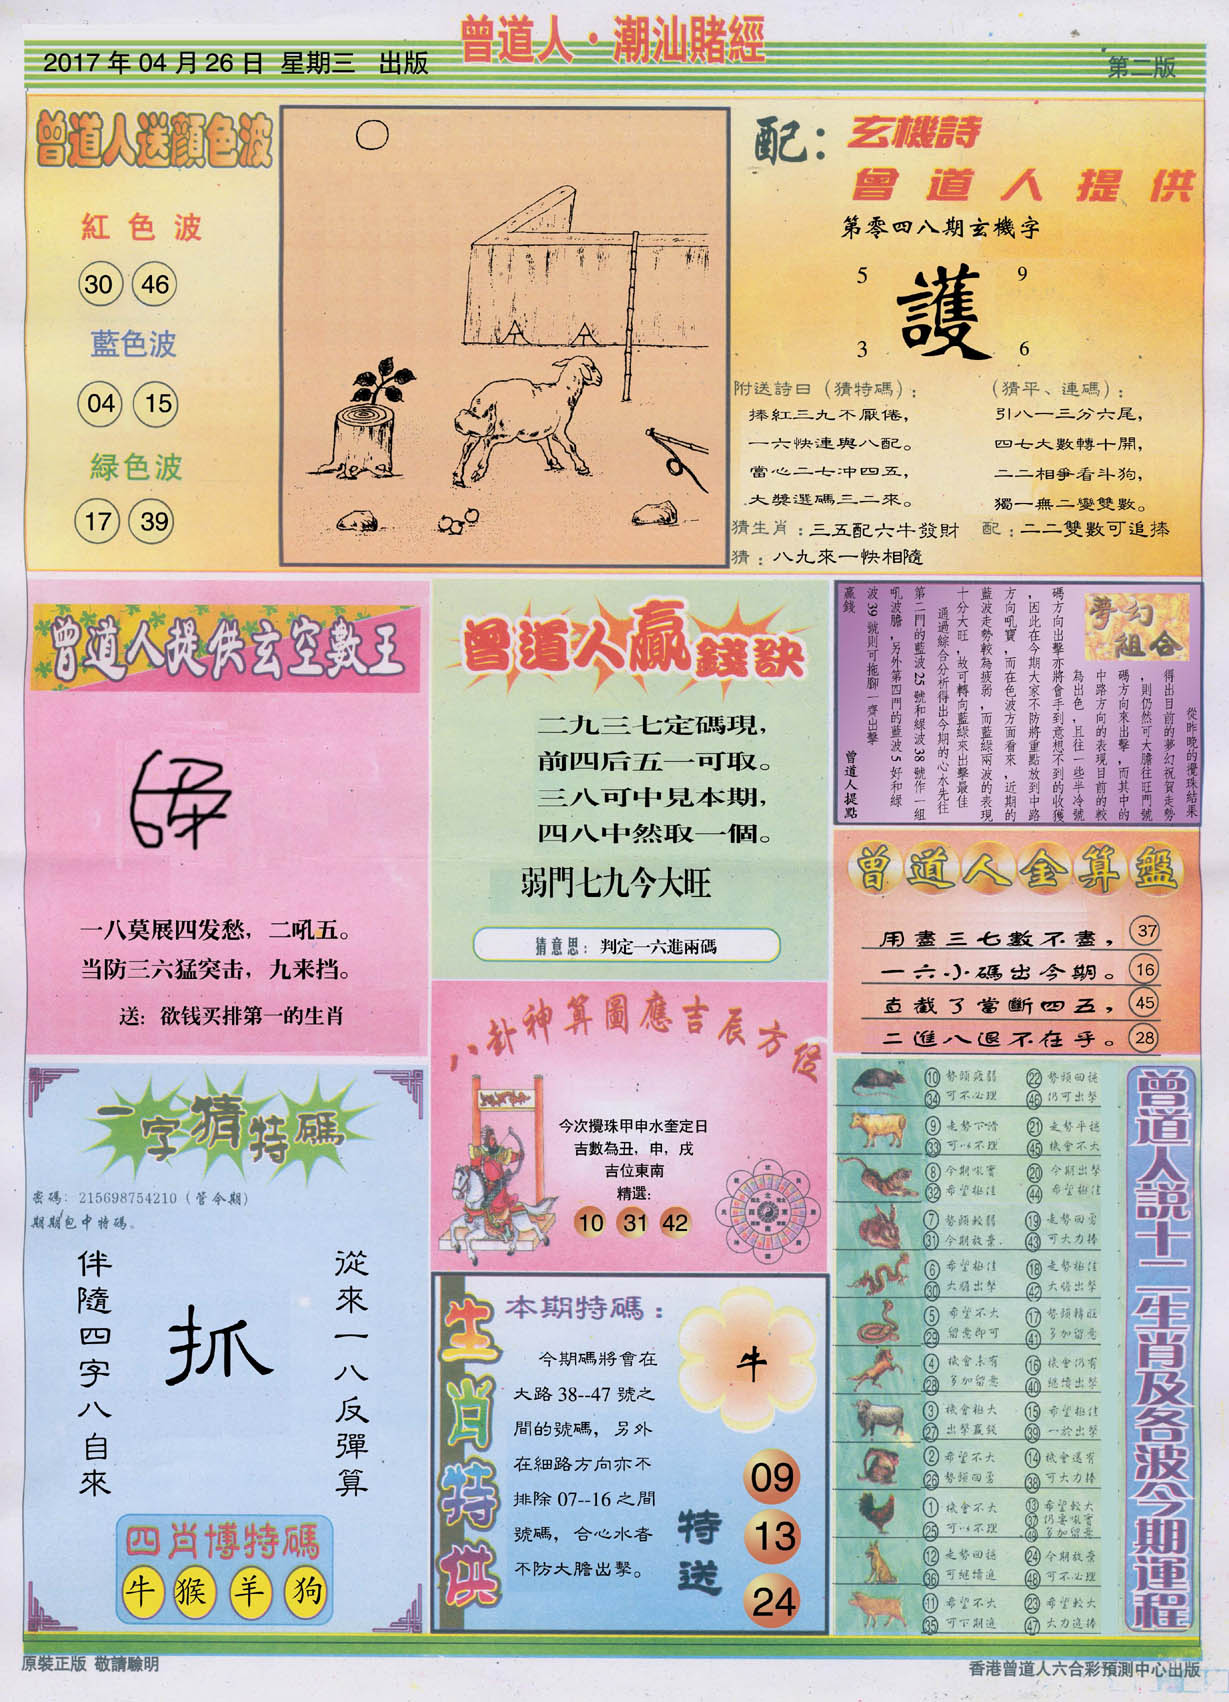 曾道人·潮汕賭經
2017年04月26日 星期三 出版
第二版
曾道人送顏色波
紅色波
30 46
藍色波
04 15
緑色波
17 39
配：玄機詩
曾道人提供
第零四八期玄機字
5 9
護
3 6
附送詩曰（猜特碼）：
捧紅三九不厭倦，
一六快連與八配。
當心二七冲四五，
大獎選碼三二來。
（猜平、連碼）：
引八一三分六尾，
四七大數轉十開，
二二相爭看斗狗，
獨一無二變雙數。
猜生肖：三五配六牛發財
配：二二雙數可追捧
猜：八九來一快相隨
曾道人提供玄空數王
一八莫展四发愁，二吼五。
当防三六猛突击，九来挡。
送：欲钱买排第一的生肖
曾道人贏錢訣
二九三七定碼現，
前四后五一可取。
三八可中見本期，
四八中然取一個。
弱門七九今大旺
猜意思：判定一六進兩碼
夢幻
組合
從昨晚的攪珠結果
得出目前的夢幻祝賀走勢
，則仍然可大膽往旺門號
碼方向來出擊，而其中的
中路方向的表現目前的較
為出色，且往一些半冷號
碼方向出擊亦將會手到意想不到的收獲
，因此在今期大家不防將重點放到中路
方向吼寶，而在色波方面看來，近期的
藍波走勢較為疲弱，而藍綠兩波的表現
十分大旺，故可轉向藍綠來出擊最佳
通過綜合分析得出今期的心水先往
第二門的藍波25號和綠波38號作一組
吼波膽，另外第四門的藍波5好和綠
波39號則可拖腳一齊出擊
贏錢
曾道人提點
曾道人金算盤
用盡三七數不盡， 37
一六小碼出今期。 16
直截了當斷四五， 45
二進八退不在乎。 28
八卦神算圖應吉辰方位
今次攪珠甲申水奎定日
吉數為丑，申，戌
吉位東南
精選：
10 31 42
一字猜特碼
密碼：215698754210（管令期）
期期包中特碼。
從來一八反彈算
抓
伴隨四字八自來
四肖博特碼
牛 猴 羊 狗
生肖特供
本期特碼：
牛
今期碼將會在
大路38--47號之
間的號碼，另外
在細路方向亦不
排除07--16之間
號碼，合心水者
不防大膽出擊。
特送
09
13
24
曾道人説十二生肖及各波今期運程
10 勢頭疲弱 22 勢頭回穩
34 可不必理 46 仍可出擊
9 走勢下滑 21 走勢平穩
33 可以不理 45 機會不大
8 今期吼寶 20 今期出擊
32 希望極佳 44 希望極佳
7 勢頭較弱 19 走勢回勇
31 今期放棄 43 可大力捧
6 希望極佳 18 走勢極佳
30 大膽出擊 42 大膽出擊
5 希望不大 17 勢頭轉旺
29 留意即可 41 多加留意
4 機會未有 16 機會仍有
28 多加留意 40 繼續出擊
3 機會極大 15 希望極佳
27 出擊贏錢 39 一於出擊
2 希望不大 14 機會還有
26 勢頭回勇 38 可大力捧
1 機會不大 13 希望較大
25 可以不理 37 仍要吼實
49 多加留意
12 走勢回穩 24 今期放棄
36 可繼續追 48 可不必理
11 希望不大 23 希望較大
35 可下期追 47 大力追捧
原裝正版 敬請驗明
香港曾道人六合彩預測中心出版